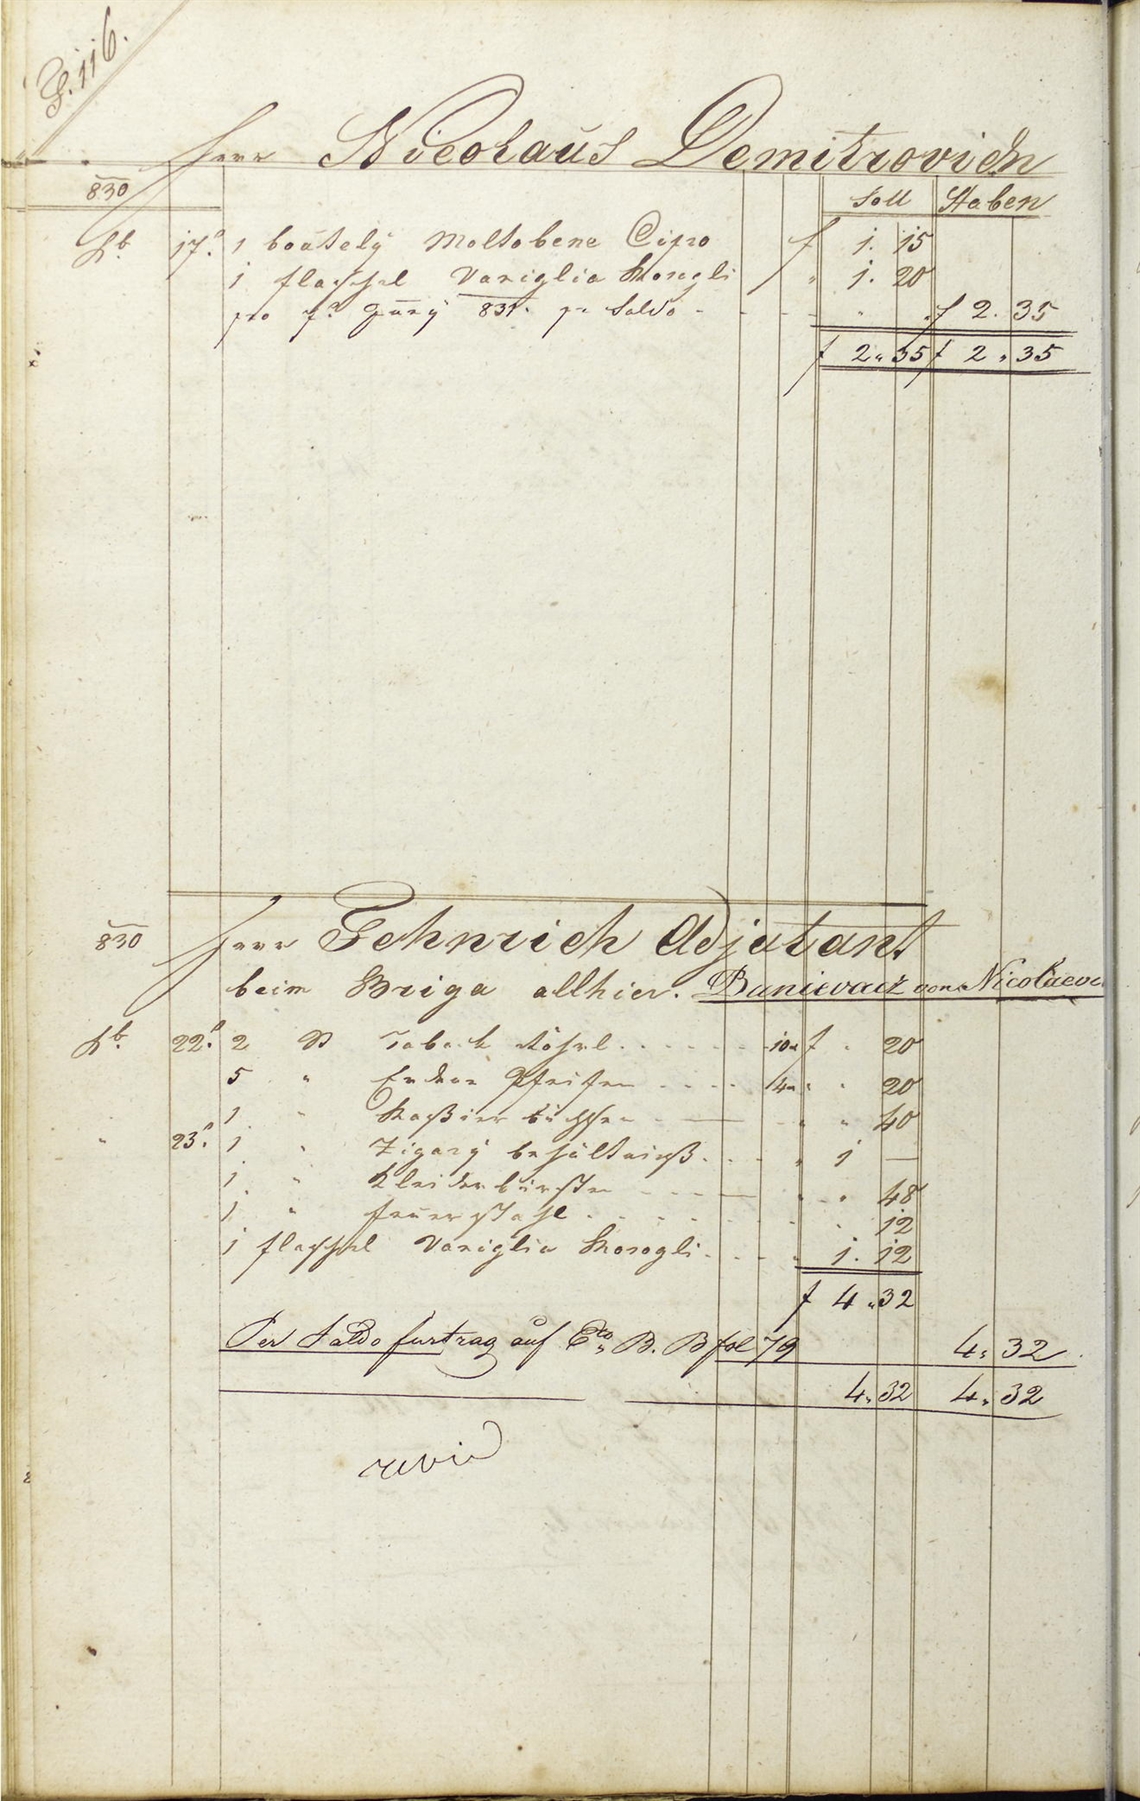 S. 116.
Herr Nicolaus Demitrovich
830
Soll Haben
Xb. 17. 1 boutely Moltobene Cipro f 1. 15
1 flaschel Vaniglia Rosogli " 1. 20
pro Juny 831. pr Saldo - - - f 2. 35
f 2 " 35 f 2 " 35
830 Herr Fehnrich Adjutant
beim Briga allhier. Bunievacz von Nicolaeva
Xb. 22. 2 St Taback Röhrl . . . . 10x f . 20
5 " Erdene Pfeifen . . . . 4x " . 20
1 " Rasier büchsen . — " " 40
" 23. 1 " Zigary behältniß . . . " 1 —
1 " Kleiderbürsten - - - — " " 48
1 " feuerstahl . . . . . 12
1 flaschel Vaniglia Rosogli . . . " 1. 12
f 4 " 32
Per Saldo furtrag auf Cto B. B fol 79 4 " 32
4 " 32 4 " 32